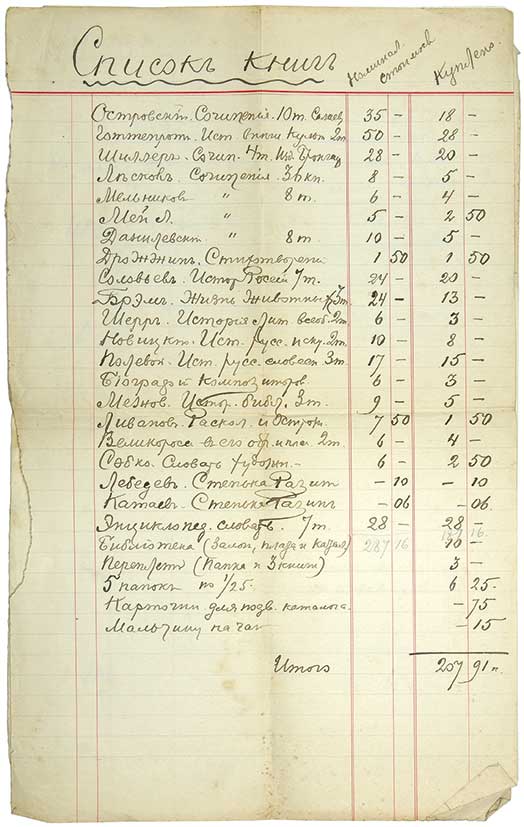 Списокъ книгъ
Номинал. стоимость
Куплено
Островскiй. Сочиненiя. 10т. 35 – 18 –
Готтенрот. Ист. внѣш. Культ. 2т. 50 – 28 –
Шиллеръ. Сочин. 4т. Изд. 28 – 20 –
Лѣсковъ. Сочиненiя. 8 – 5 –
Мельников " 8т. 6 – 4 –
Мей Л. " 5 – 2 50
Данилевскiй " 8т. 10 – 5 –
Дрожжин. Стихотворенi 1 50 1 50
Соловьевъ. Истор. Россiи 7т. 24 – 20 –
Брэмъ. Жизнь Животных 3т. 24 – 13 –
Шерръ. Исторiя Лит. всеоб. 2т. 6 – 3 –
Новицкiй. Ист. русс. иску. 2т. 10 – 8 –
Полевой. Ист. русс. словесн 3т. 17 – 15 –
Бiографiй композиторов. 6 – 3 –
Межов. Истор. библ. 3т. 9 – 5 –
Ливановъ. Раскол. и Острож. 7 50 1 50
Великоросс. в его 2т. 6 – 4 –
Собко. Словарь художн. – 6 – 2 50
Лебедевъ. Стенька Разин – 10 – 10
Катаев. Стенька Разинъ – 06 – 06.
Энциклопед. словарь. 7т. 28 – 28 –
Библiотека 287 16 10 –
Переплетъ (Папка и 3 книги) 3 –
5 папокъ по 1/25. 6 25.
Карточки для подв. каталога. – 75
Мальчику на чай – 15
Итого 207 91 к.